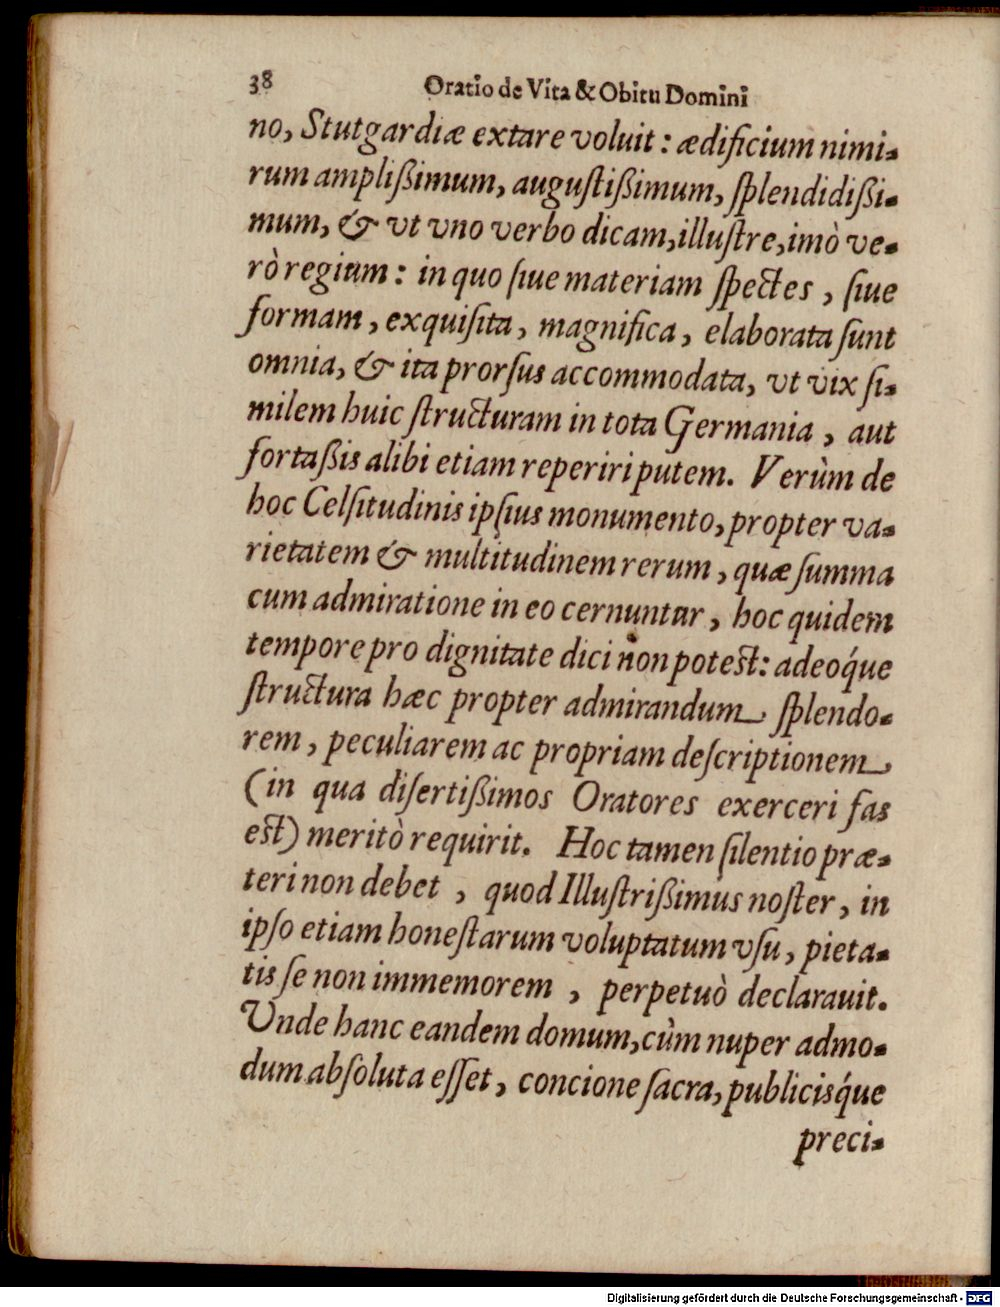 38 Oratio de Vita & Obitu Domini
no, Stutgardiæ extare voluit: ædificium nimi-
rum ampliſsimum, auguſtiſsimum, ſplendidiſsi-
mum, & vt vno verbo dicam, illuſtre, imò ve-
rò regium: in quo ſiue materiam ſpectes, ſiue
formam, exquiſita, magnifica, elaborata ſunt
omnia, & ita prorſus accommodata, vt vix ſi-
milem huic ſtructuram in tota Germania, aut
fortaſsis alibi etiam reperiri putem. Verùm de
hoc Celſitudinis ipſius monumento, propter va-
rietatem & multitudinem rerum, quæ ſumma
cum admiratione in eo cernuntur, hoc quidem
tempore pro dignitate dici non poteſt: adeoq́ue
ſtructura hæc propter admirandum ſplendo-
rem, peculiarem ac propriam deſcriptionem
(in qua diſertiſsimos Oratores exerceri fas
eſt) meritò requirit. Hoc tamen ſilentio præ-
teri non debet, quod Illuſtriſsimus noſter, in
ipſo etiam honeſtarum voluptatum vſu, pieta-
tis ſe non immemorem, perpetuò declarauit.
Vnde hanc eandem domum, cùm nuper admo-
dum abſoluta eſſet, concione ſacra, publicisq́ue
preci-
Digitalisierung gefördert durch die Deutsche Forschungsgemeinschaft - DFG